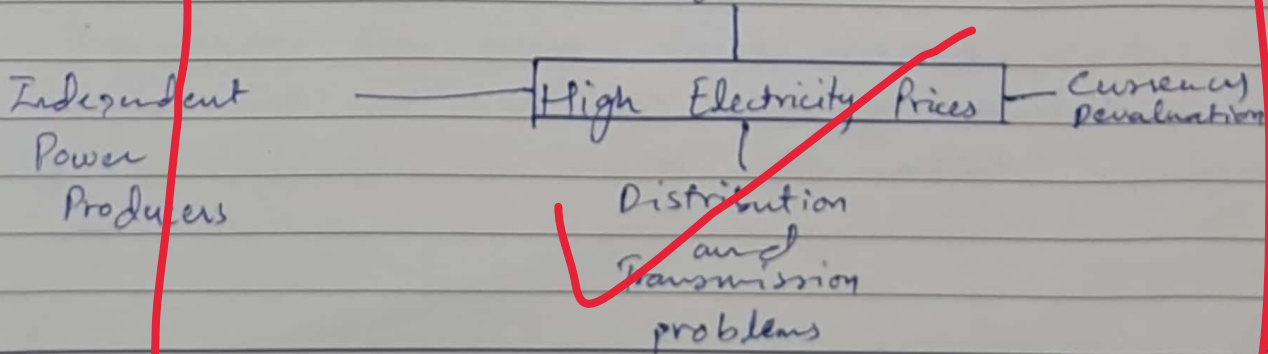 Independent
Power
Producers
High Electricity Prices
Currency
Devaluation
Distribution
and
Transmission
problems